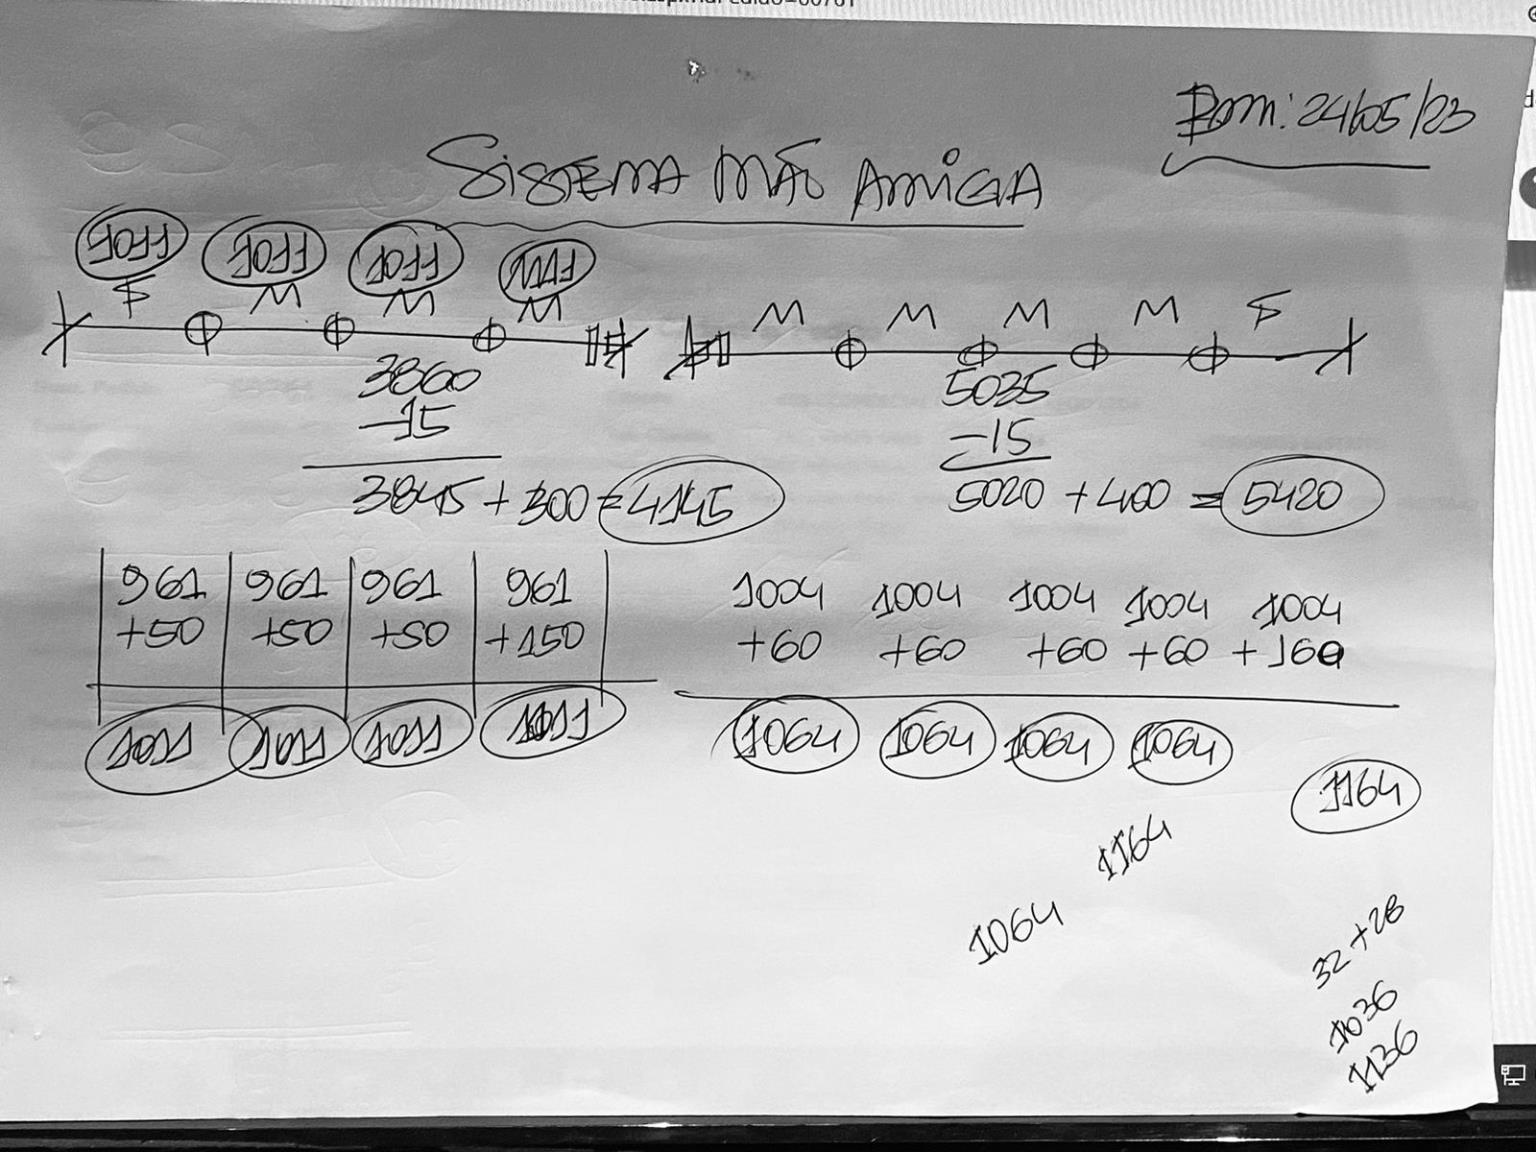 Dom: 24/05/23
SISTEMA MÃO AMIGA
F M M M
M M M M F
3860
-15
3845 + 300 = 4145
5035
-15
5020 + 400 = 5420
961 961 961 961
+50 +50 +50 +150
1011 1011 1011 1011
1004 1004 1004 1004 1004
+60 +60 +60 +60 +160
1064 1064 1064 1064
1164
1164
1064
32+28
1036
1136